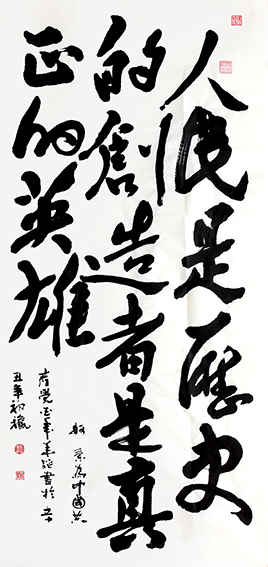 人民是歷史
的創造者是真
正的英雄
為中國共
產黨百年華誕書於辛
丑年初